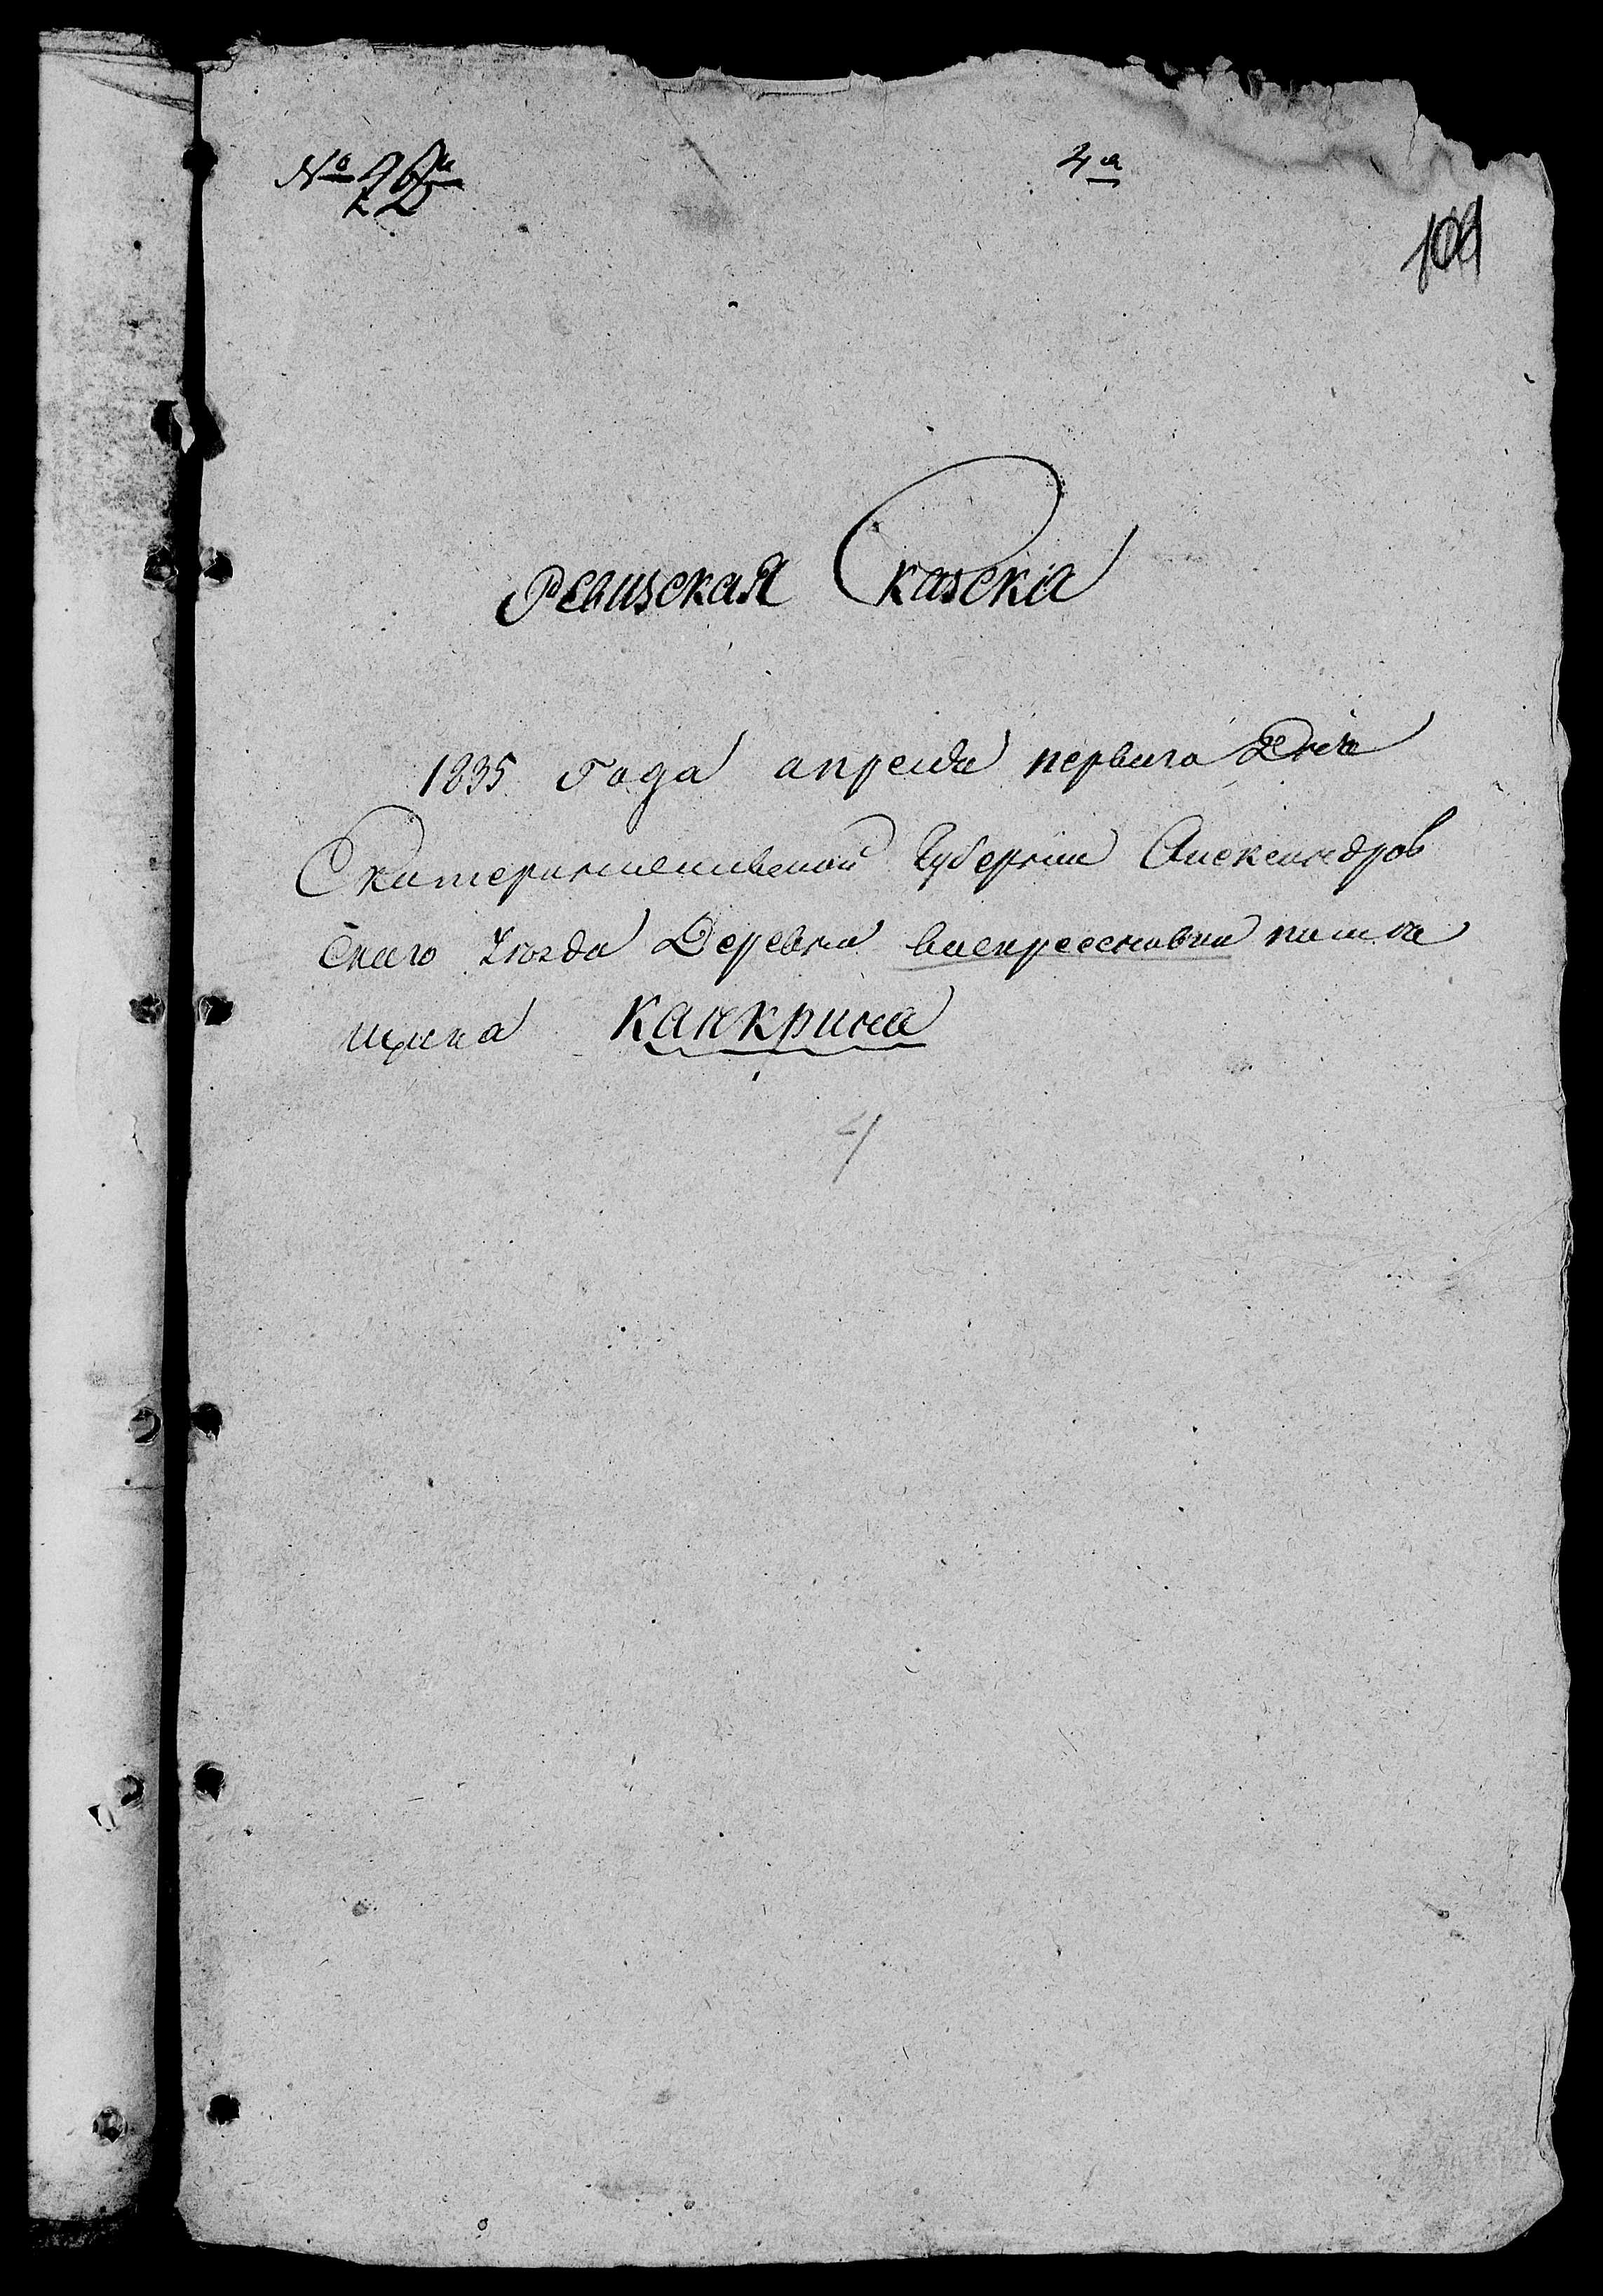 № 26й 4я
109
Ревизская Сказска
1835 года апреля первого Дня
Екатеринославской Губернии Александров
скаго Уезда Деревни Васкрессновки помѣ
щика Канкрина
4